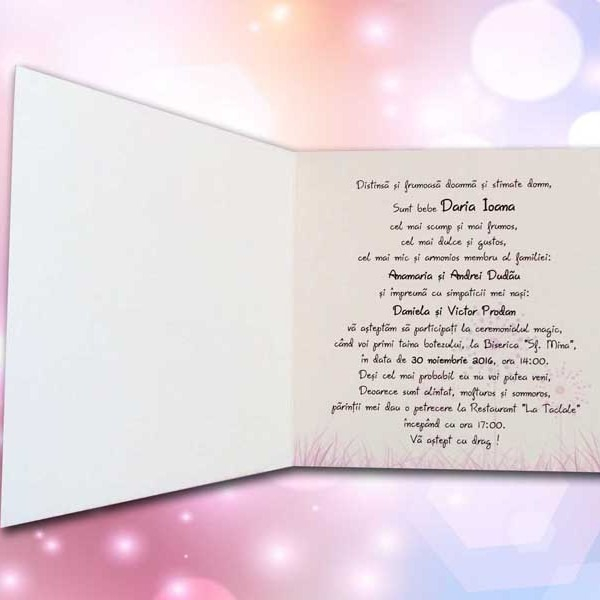 Distinsă și frumoasă doamnă și stimate domn,
Sunt bebe Daria Ioana
cel mai scump și mai frumos,
cel mai dulce și gustos,
cel mai mic și armonios membru al familiei:
Anamaria și Andrei Dudău
și împreună cu simpaticii mei nași:
Daniela și Victor Prodan
vă așteptăm să participați la ceremonialul magic,
când voi primi taina botezului, la Biserica "Sf. Mina",
în data de 30 noiembrie 2016, ora 14:00.
Deși cel mai probabil eu nu voi putea veni,
Deoarece sunt alintat, mofturos și somnoros,
părinții mei dau o petrecere la Restaurant "La Taclale"
începând cu ora 17:00.
Vă aștept cu drag !